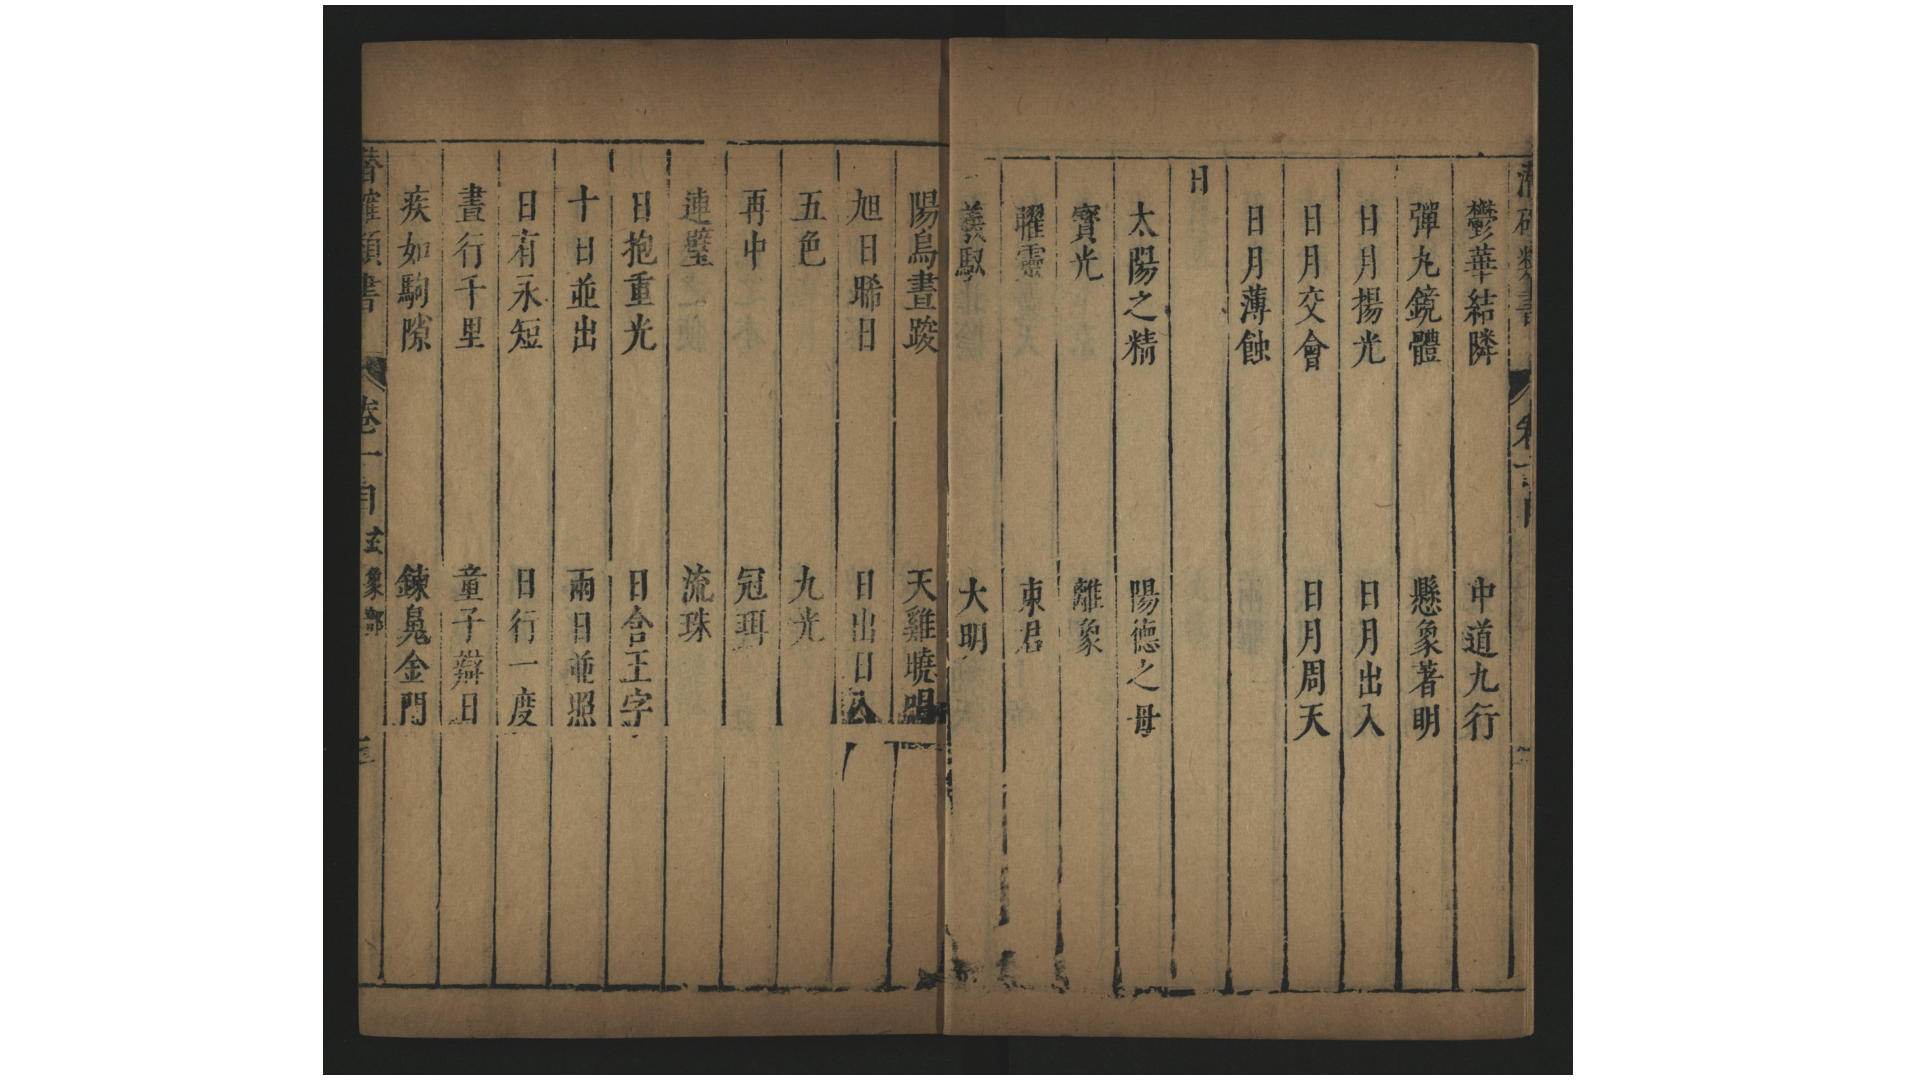 鬱華結隣　中道九行
彈丸鏡體　懸象著明
日月揚光　日月出入
日月交會　日月周天
日月薄蝕
日
太陽之精　陽德之母
寳光　離象
曜靈　東君
羲馭　大明
陽烏晝踆　天雞曉唱
旭日晞日　日出日入
五色　九光
再中　冠珥
連璧　流珠
日抱重光　日含王字
十日並出　兩日並照
日有永短　日行一度
晝行千里　童子辯日
疾如駒隙　鍊臯金門
類書　卷一目　玄象部　三